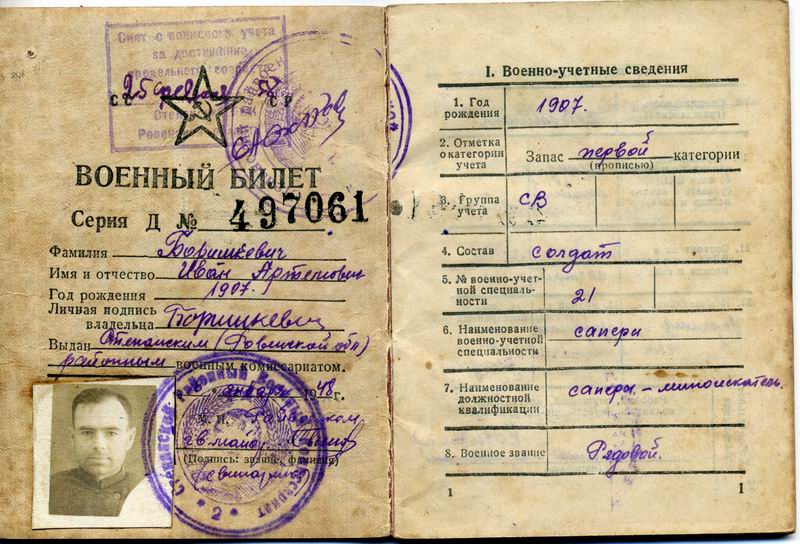 Снят с воинского учета
за достижение
предельного возраста
25 февраля
СС СР
ВОЕННЫЙ БИЛЕТ
Серия Д № 497061
Фамилия Боришкевич
Имя и отчество Иван Артемович
Год рождения 1907.
Личная подпись
владельца
Выдан Степанским (Ровенской обл)
районным военным комиссариатом.
января 1948 г.
М. П.
гв. майор
(Подпись: звание, фамилия)
2
I. Военно-учетные сведения
1. Год рождения 1907.
2. Отметка о категории учета Запас первой категории
(прописью)
3. Группа учета СВ
4. Состав солдат
5. № военно-учетной специальности 21
6. Наименование военно-учетной специальности саперы
7. Наименование должностной квалификации саперы-миноискатель.
8. Военное звание Рядовой.
1 1